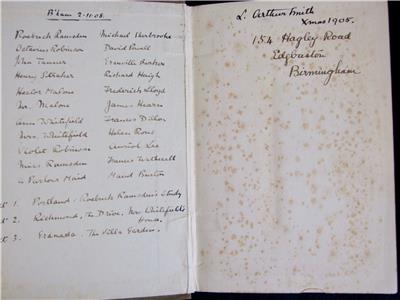 B'ham 2-11-08.
Roebuck Ramsden Michael Sherbrooke
Octavius Robinson David Powell
John Tanner Granville Barker
Henry Straker Richard Haigh
Hector Malone Frederick Lloyd
Mr. Malone James Hearn
Ann Whitefield Frances Dillon
Mrs. Whitefield Helen Rous
Violet Robinson Auriol Lee
Miss Ramsden Frances Wetherall
A Parlour Maid Maud Buxton
Act 1. Portland. Roebuck Ramsden's Study
Act 2. Richmond, The Drive, Mrs Whitefield's
House.
Act 3. Granada. The Villa Garden.
L. Arthur Smith
Xmas 1905.
154 Hagley Road
Edgbaston
Birmingham